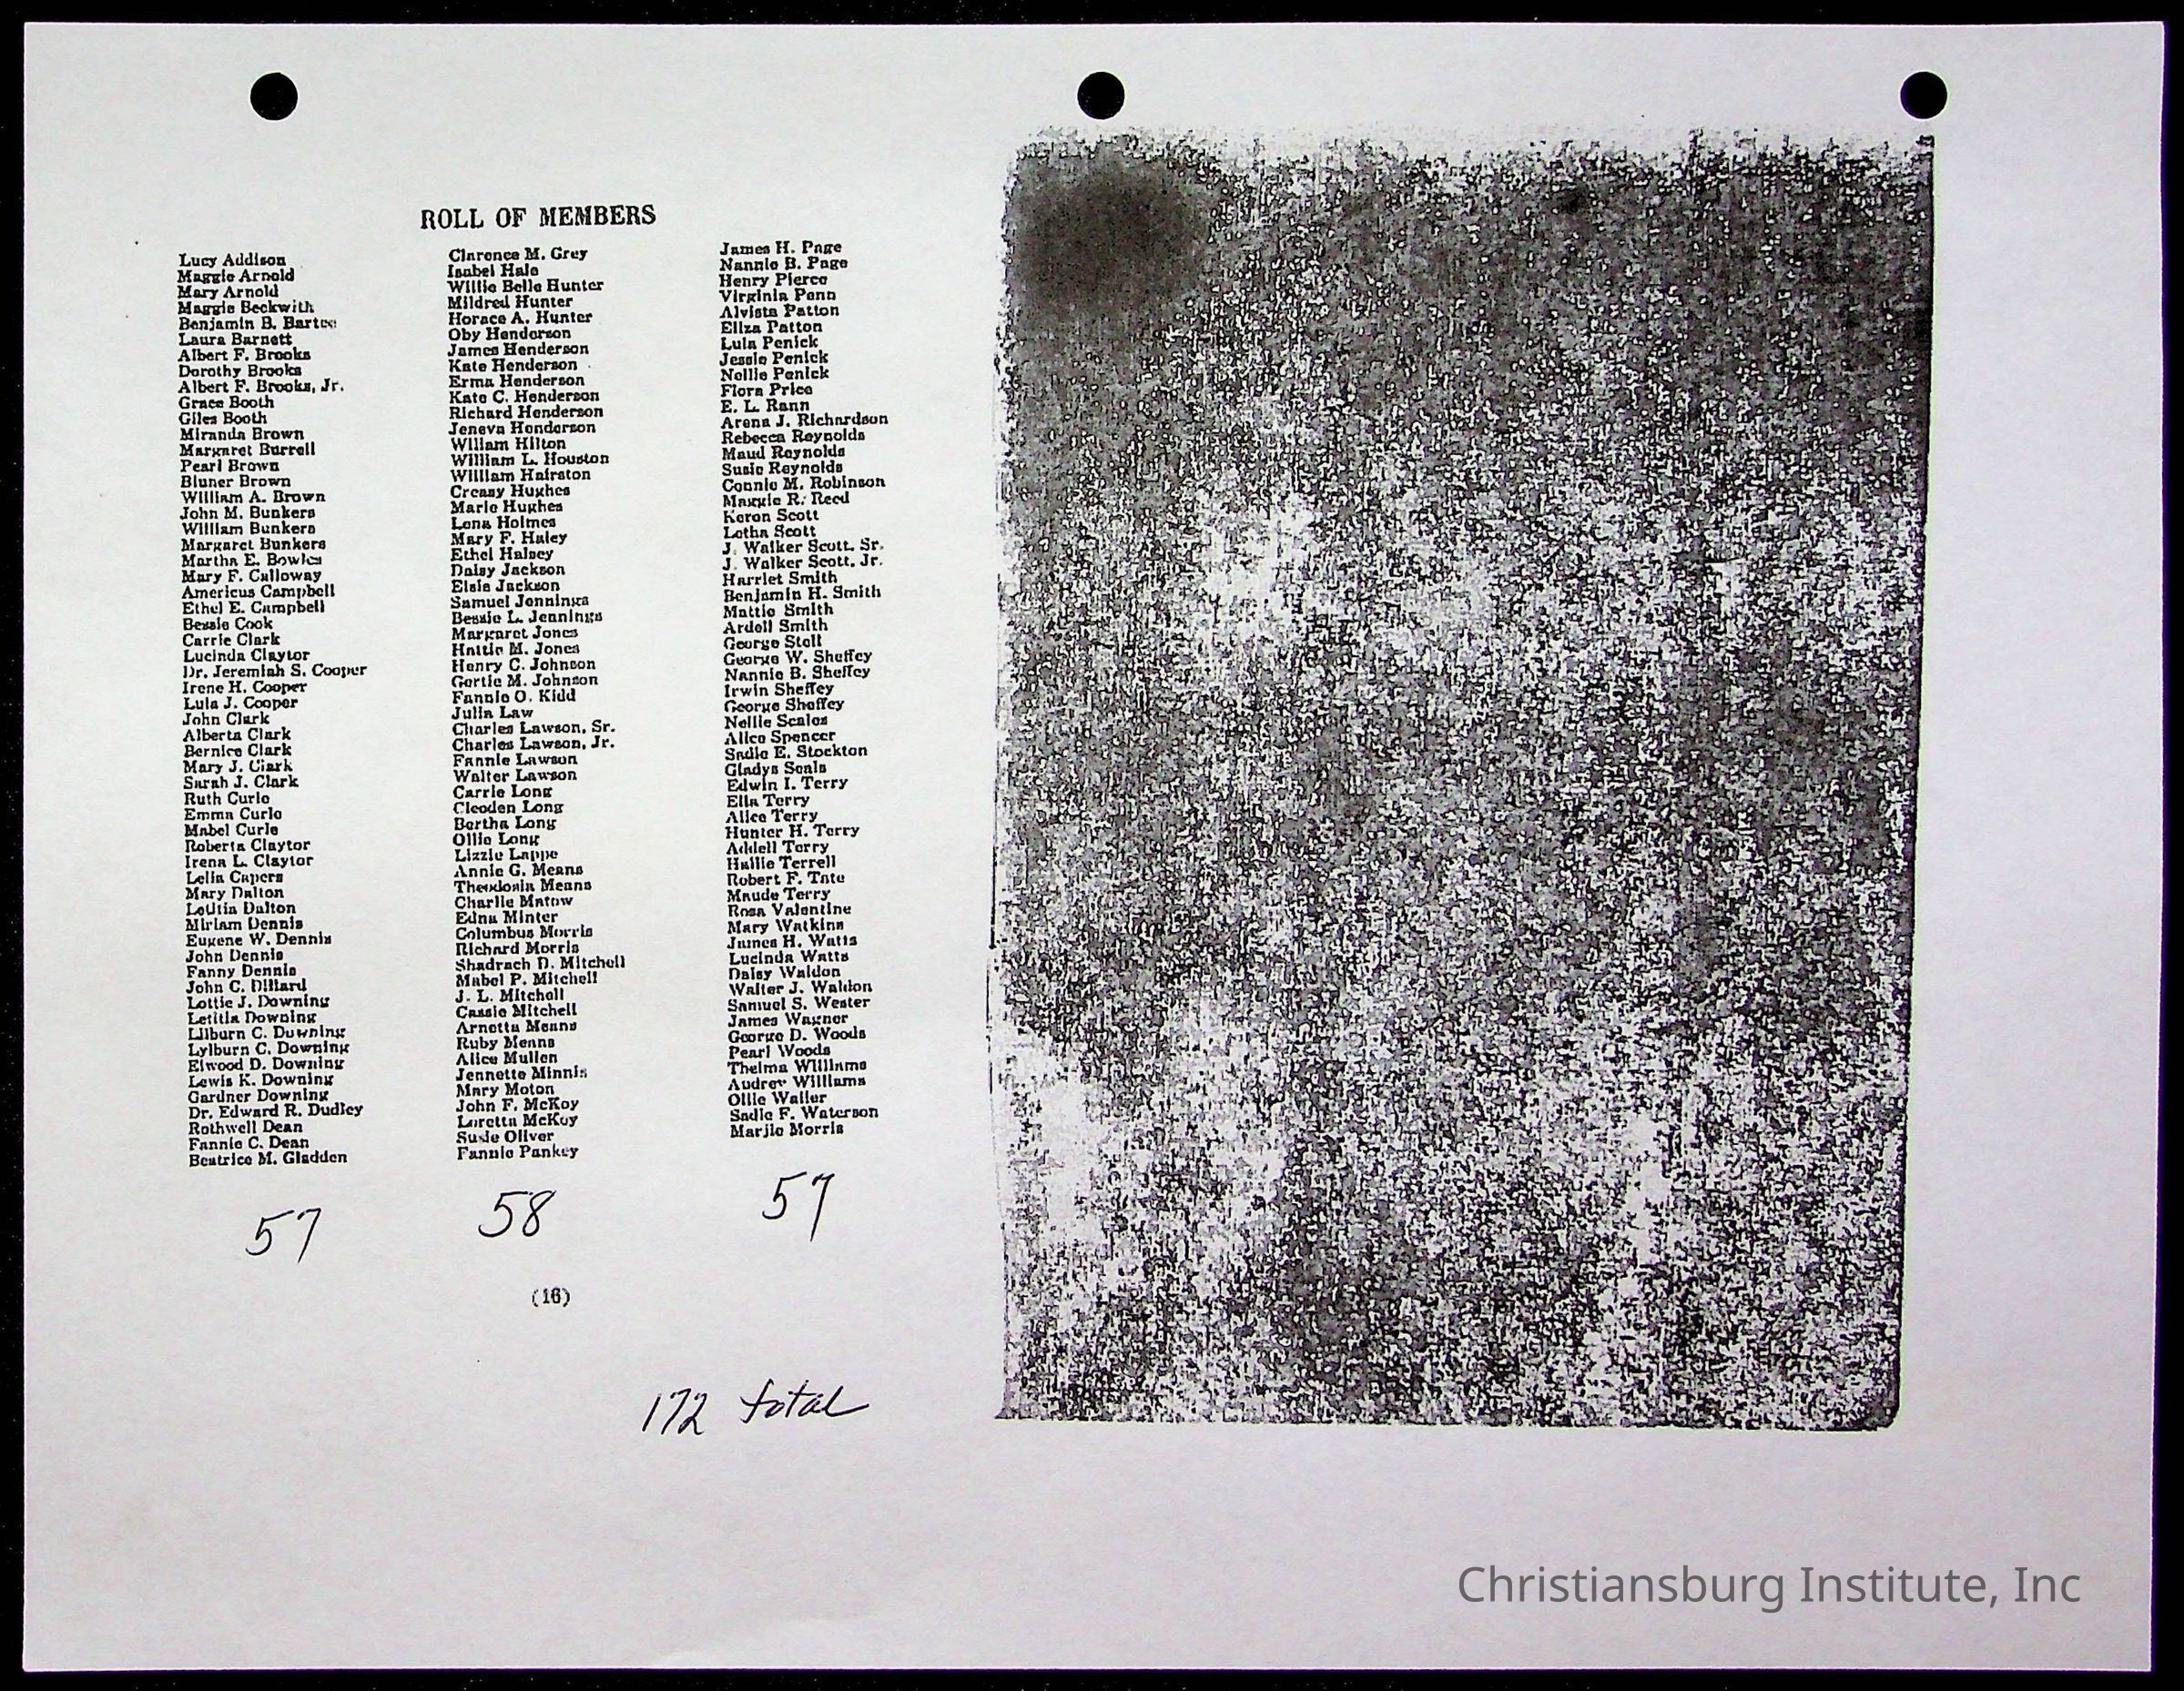 ROLL OF MEMBERS
Lucy Addison
Maggie Arnold
Mary Arnold
Maggie Beckwith
Benjamin B. Bartee
Laura Barnett
Albert F. Brooks
Dorothy Brooks
Albert F. Brooks, Jr.
Grace Booth
Giles Booth
Miranda Brown
Margaret Burrell
Pearl Brown
Bluner Brown
William A. Brown
John M. Bunkers
William Bunkers
Margaret Bunkers
Martha E. Bowles
Mary F. Calloway
Americus Campbell
Ethel E. Campbell
Bessie Cook
Carrie Clark
Lucinda Claytor
Dr. Jeremiah S. Cooper
Irene H. Cooper
Lula J. Cooper
John Clark
Alberta Clark
Bernice Clark
Mary J. Clark
Sarah J. Clark
Ruth Curle
Emma Curle
Mabel Curle
Roberta Claytor
Irena L. Claytor
Lelia Capers
Mary Dalton
Letitia Dalton
Miriam Dennis
Eugene W. Dennis
John Dennis
Fanny Dennis
John C. Dillard
Lottie J. Downing
Letitia Downing
Lilburn C. Downing
Lylburn C. Downing
Elwood D. Downing
Lewis K. Downing
Gardner Downing
Dr. Edward R. Dudley
Rothwell Dean
Fannie C. Dean
Beatrice M. Gladden
57
Clarence M. Grey
Isabel Hale
Willie Belle Hunter
Mildred Hunter
Horace A. Hunter
Oby Henderson
James Henderson
Kate Henderson
Erma Henderson
Kate C. Henderson
Richard Henderson
Jeneva Henderson
William Hilton
William L. Houston
William Hairston
Creasy Hughes
Marie Hughes
Lena Holmes
Mary F. Haley
Ethel Halsey
Daisy Jackson
Elsie Jackson
Samuel Jennings
Bessie L. Jennings
Margaret Jones
Hattie M. Jones
Henry C. Johnson
Gertie M. Johnson
Fannie O. Kidd
Julia Law
Charles Lawson, Sr.
Charles Lawson, Jr.
Fannie Lawson
Walter Lawson
Carrie Long
Cleoden Long
Bertha Long
Ollie Long
Lizzie Lappe
Annie G. Means
Theodosia Means
Charlie Matow
Edna Minter
Columbus Morris
Richard Morris
Shadrach D. Mitchell
Mabel P. Mitchell
J. L. Mitchell
Cassie Mitchell
Arnetta Means
Ruby Means
Alice Mullen
Jennette Minnis
Mary Moton
John F. McKoy
Loretta McKoy
Susie Oliver
Fannie Pankey
58
James H. Page
Nannie B. Page
Henry Pierce
Virginia Penn
Alvista Patton
Eliza Patton
Lula Penick
Jessie Penick
Nellie Penick
Flora Price
E. L. Rann
Arena J. Richardson
Rebecca Reynolds
Maud Reynolds
Susie Reynolds
Connie M. Robinson
Maggie R. Reed
Keron Scott
Letha Scott
J. Walker Scott, Sr.
J. Walker Scott, Jr.
Harriet Smith
Benjamin H. Smith
Mattie Smith
Ardell Smith
George Stoll
George W. Sheffey
Nannie B. Sheffey
Irwin Sheffey
George Sheffey
Nellie Scales
Alice Spencer
Sadie E. Stockton
Gladys Seals
Edwin I. Terry
Ella Terry
Alice Terry
Hunter H. Terry
Addell Terry
Hallie Terrell
Robert F. Tate
Maude Terry
Rosa Valentine
Mary Watkins
James H. Watts
Lucinda Watts
Daisy Waldon
Walter J. Waldon
Samuel S. Wester
James Wagner
George D. Woods
Pearl Woods
Thelma Williams
Audrey Williams
Ollie Waller
Sadie F. Waterson
Marjie Morris
57
(16)
172 total
Christiansburg Institute, Inc